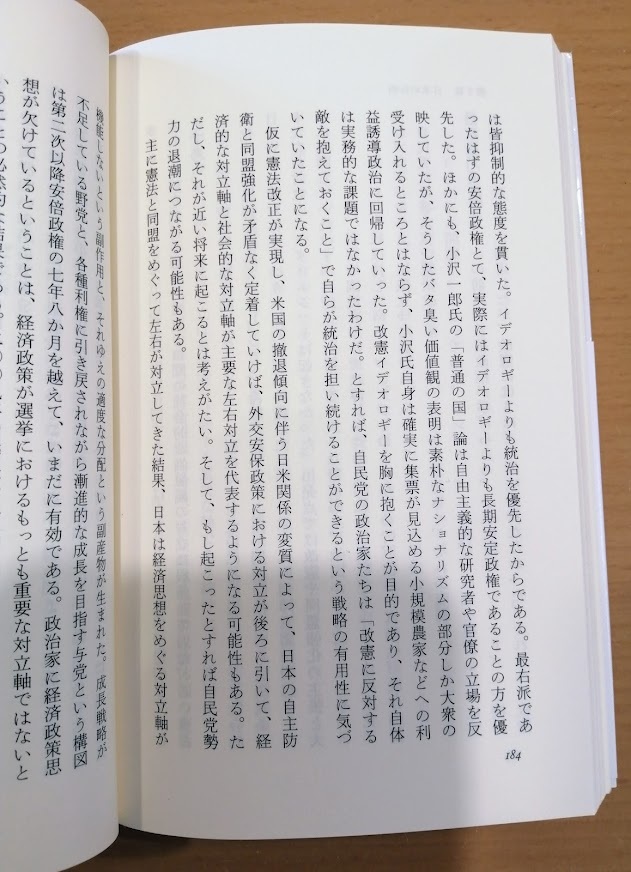 は皆抑制的な態度を貫いた。イデオロギーよりも統治を優先したからである。最右派であ
ったはずの安倍政権とて、実際にはイデオロギーよりも長期安定政権であることの方を優
先した。ほかにも、小沢一郎氏の「普通の国」論は自由主義的な研究者や官僚の立場を反
映していたが、そうしたバタ臭い価値観の表明は素朴なナショナリズムの部分しか大衆の
受け入れるところとはならず、小沢氏自身は確実に集票が見込める小規模農家などへの利
益誘導政治に回帰していった。改憲イデオロギーを胸に抱くことが目的であり、それ自体
は実務的な課題ではなかったわけだ。とすれば、自民党の政治家たちは「改憲に反対する
敵を抱えておくこと」で自らが統治を担い続けることができるという戦略の有用性に気づ
いていたことになる。
仮に憲法改正が実現し、米国の撤退傾向に伴う日米関係の変質によって、日本の自主防
衛と同盟強化が矛盾なく定着していけば、外交安保政策における対立が後ろに引いて、経
済的な対立軸と社会的な対立軸が主要な左右対立を代表するようになる可能性もある。た
だし、それが近い将来に起こるとは考えがたい。そして、もし起こったとすれば自民党勢
力の退潮につながる可能性もある。
主に憲法と同盟をめぐって左右が対立してきた結果、日本は経済思想をめぐる対立軸が
184
機能しないという副作用と、それゆえの適度な分配という副産物が生まれた。成長戦略が
不足している野党と、各種利権に引き戻されながら漸進的な成長を目指す与党という構図
は第二次以降安倍政権の七年八か月を越えて、いまだに有効である。政治家に経済政策思
想が欠けているということは、経済政策が選挙におけるもっとも重要な対立軸ではないと